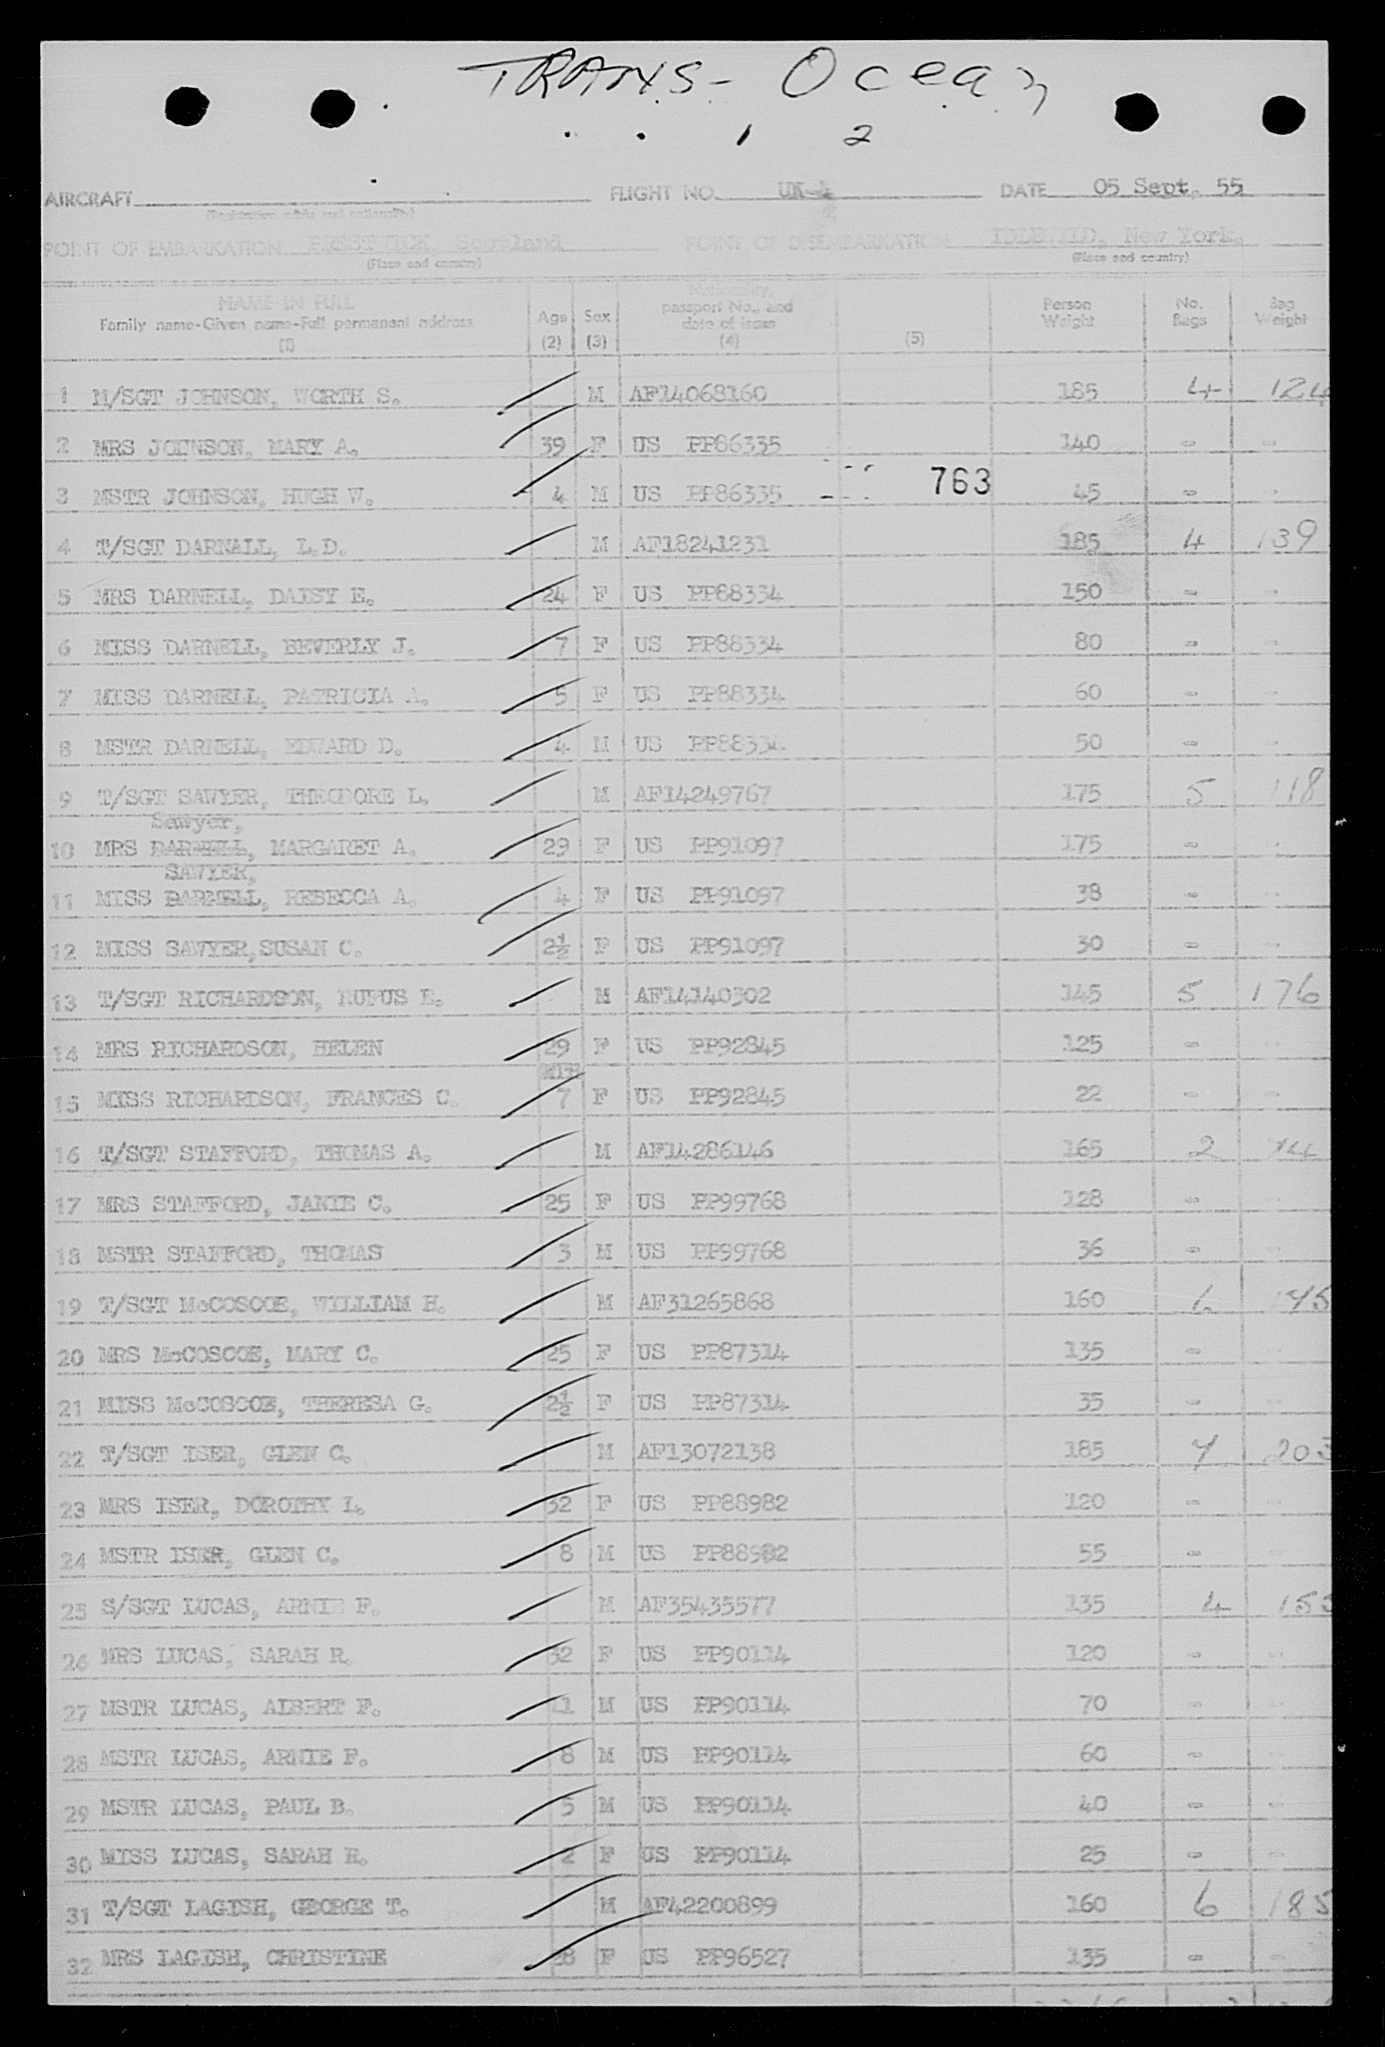 TRANS- Ocean
1 2
AIRCRAFT FLIGHT NO. UK-4 DATE 05 Sept. 55
(Registration marks and nationality)
POINT OF EMBARKATION PRESTWICK, Scotland POINT OF DISEMBARKATION IDLEWILD, New York.
(Place and country) (Place and country)
NAME IN FULL Nationality, Person No. Bag
Family name-Given name-Full permanent address Age Sex passport No., and Weight Bags Weight
date of issue
(1) (2) (3) (4) (5)
1 M/SGT JOHNSON, WORTH S. M AF14068160 185 4 124
2 MRS JOHNSON, MARY A. 39 F US PP86335 140 - -
3 MSTR JOHNSON, HUGH W. 4 M US PP86335 763 45 - -
4 T/SGT DARNALL, L.D. M AF18241231 185 4 139
5 MRS DARNELL, DAISY E. 24 F US PP88334 150 - -
6 MISS DARNELL, BEVERLY J. 7 F US PP88334 80 - -
7 MISS DARNELL, PATRICIA A. 5 F US PP88334 60 - -
8 MSTR DARNELL, EDWARD D. 4 M US PP88334 50 - -
9 T/SGT SAWYER, THEODORE L. M AF14249767 175 5 118
Sawyer,
10 MRS DARNELL, MARGARET A. 29 F US PP91097 175 - -
SAWYER,
11 MISS DARNELL, REBECCA A. 4 F US PP91097 38 - -
12 MISS SAWYER,SUSAN C. 2½ F US PP91097 30 - -
13 T/SGT RICHARDSON, RUFUS E. M AF14140302 145 5 176
14 MRS RICHARDSON, HELEN 29 F US PP92845 125 - -
15 MISS RICHARDSON, FRANCES C. 7 F US PP92845 22 - -
16 T/SGT STAFFORD, THOMAS A. M AF14286146 165 2 74
17 MRS STAFFORD, JANIE C. 25 F US PP99768 128 - -
18 MSTR STAFFORD, THOMAS 3 M US PP99768 36 - -
19 T/SGT McCOSCOE, WILLIAM H. M AF31265868 160
20 MRS McCOSCOE, MARY C. 25 F US PP87314 135 - -
21 MISS McCOSCOE, THERESA G. 2½ F US PP87314 35 - -
22 T/SGT ISER, GLEN C. M AF13072138 185 7 203
23 MRS ISER, DOROTHY L. 32 F US PP88982 120 - -
24 MSTR ISER, GLEN C. 8 M US PP88982 55 - -
25 S/SGT LUCAS, ARNIE F. M AF35435577 135 4
26 MRS LUCAS, SARAH R. 32 F US PP90114 120 - -
27 MSTR LUCAS, ALBERT F. 11 M US PP90114 70 - -
28 MSTR LUCAS, ARNIE F. 8 M US PP90114 60 - -
29 MSTR LUCAS, PAUL B. 5 M US PP90114 40 - -
30 MISS LUCAS, SARAH R. 2 F US PP90114 25 - -
31 T/SGT LAGISH, GEORGE T. M AF42200899 160 6 185
32 MRS LAGISH, CHRISTINE 28 F US PP96527 135 - -